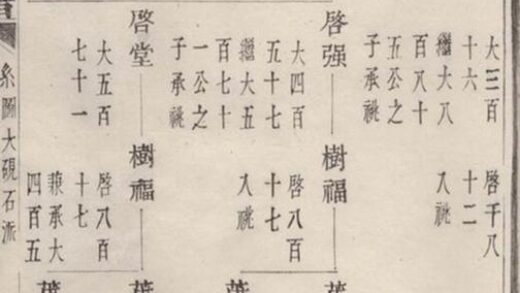 大三百
十六
繼大八
百八十
五公之
子承祧
啓强
大四百
五十七
繼大五
百七十
一公之
子承祧
啓堂
大五百
七十一
啓千八
十二
入祧
樹福
啓八百
十七
入祧
樹福
啓八百
十七
兼承大
四百五
系圖大硯石派